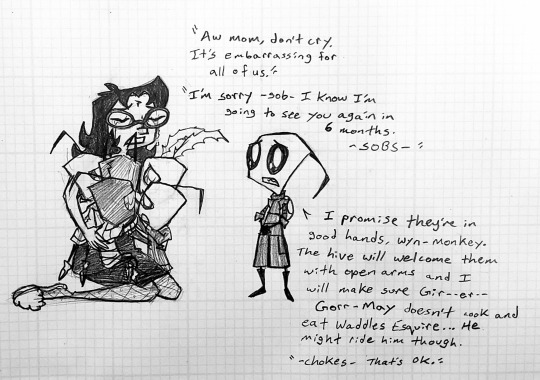 "Aw mom, don't cry.
It's embarrassing for
all of us."
"I'm sorry -sob- I know I'm
going to see you again in
6 months.
-SOBS- "
I promise they're in
good hands, wyn-monkey.
The hive will welcome them
with open arms and I
will make sure Gir--er--
Gorr-May doesn't cook and
eat Waddles Esquire... He
might ride him though.
"-chokes- That's OK."